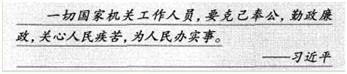 一切国家机关工作人员，要克己奉公，勤政廉
政，关心人民疾苦，为人民办实事。
——习近平